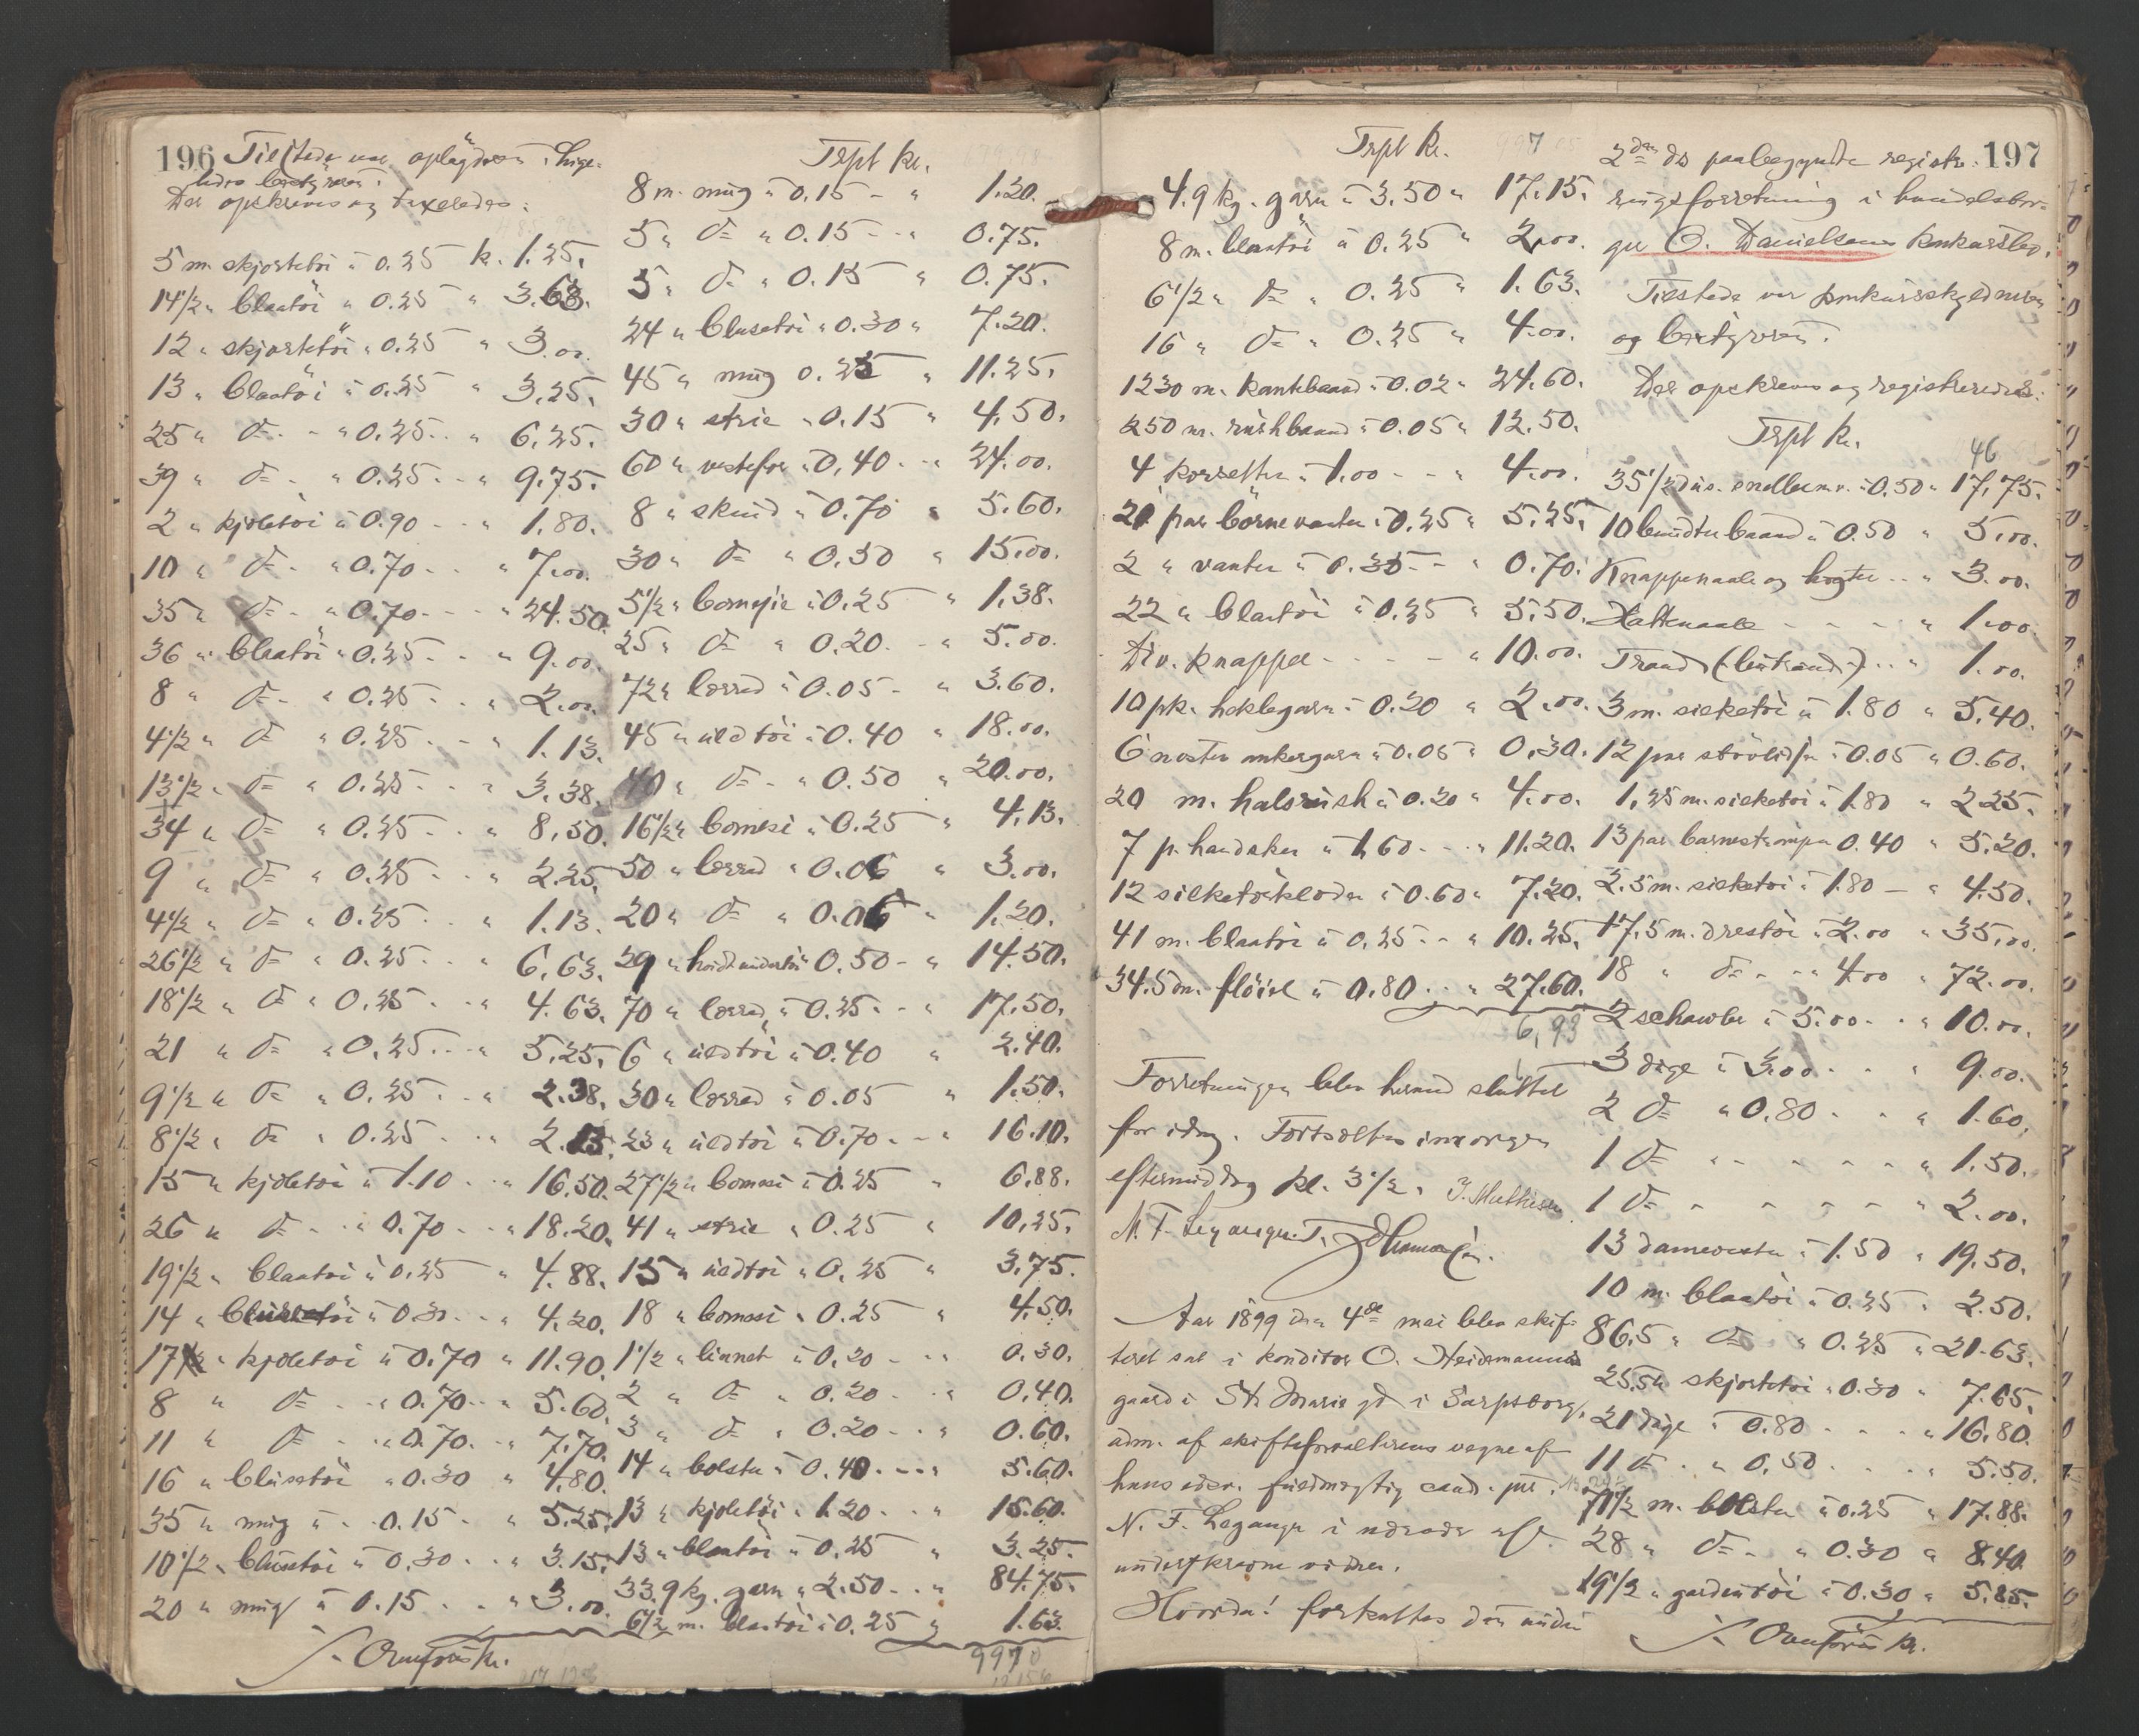 196 Tilstede var oplagdvren i lige-
ledes bestyreren.
Der opskreves og taxeredes:
5 m. skjortetöi à 0.25 k. 1.25.
14 1/2 " blaatöi " 0.25 " 3.63.
12 " skjortetöi " 0.25 " 3.00.
13 " blaatöi à 0.25 " 3.25.
25 " do - " 0.25 - - " 6.25.
39 " do - " 0.25 - - " 9.75.
2 " kjoletöi à 0.90 - - " 1.80.
10 " do - " 0.70 - - " 7.00.
35 " do - " 0.70 - - " 24.50.
36 " blaatöi " 0.25 - - " 9.00.
8 " do - " 0.25 - - " 2.00.
4 1/2 " do " 0.25 - - " 1.13.
13 1/2 " do " 0.25 - - " 3.38.
34 " do " 0.25 - - " 8.50.
9 " do " 0.25 - - " 2.25.
4 1/2 " do " 0.25 - - " 1.13.
26 1/2 " do " 0.25 - - " 6.63.
18 1/2 " do " 0.25 - - " 4.63.
21 " do " 0.25 - - " 5.25.
9 1/2 " do " 0.25 - - " 2.38.
8 1/2 " do " 0.25 - - " 2.13.
15 " kjoletöi à 1.10 - - " 16.50.
26 " do - " 0.70 - - " 18.20.
19 1/2 " blaatöi à 0.25 " 4.88.
14 " blusetöi à 0.30 - - " 4.20.
17 " kjoletöi à 0.70 " 11.90.
8 " do - " 0.70 - - " 5.60.
11 " do - " 0.70 - - " 7.70.
16 " blusetöi " 0.30 " 4.80.
35 " mug à - 0.15 - " 5.25.
10 1/2 " blusetöi à 0.30 - - " 3.15.
20 " mug à 0.15 - - " 3.00.
Overföres kr.
Trpt kr.
8 m. mug à 0.15 - " 1.20.
5 " do " 0.15 - - " 0.75.
5 " do " 0.15 " 0.75.
24 " blusetöi " 0.30 " 7.20.
45 " mug 0.25 " 11.25.
30 " strie " 0.15 " 4.50.
60 " vestefor à 0,40 - - " 24.00.
8 " skind à 0.70 " 5.60.
30 " do " 0.50 " 15.00.
5 1/2 " bomesie à 0.25 " 1.38.
25 " do " 0.20 - - " 5.00.
72 " lerred à 0.05 - " 3.60.
45 " uldtöi à 0.40 " 18.00.
40 " do - " 0.50 " 20.00.
16 1/2 " bomesi à 0.25 " 4.13.
50 " lerred " 0.06 " 3.00.
20 " do " 0.06 " 1.20.
29 " hvidt undertöi 0.50 - " 14.50.
70 " lerred à 0.25 - - " 17.50.
6 " uldtöi à 0.40 " 2.40.
30 " lerred à 0.05 " 1.50.
23 " uldtöi à 0.70 - - " 16.10.
27 1/2 " bomesi à 0.25 " 6.88.
41 " strie " 0.25 " 10.25.
15 " uldtöi " 0.25 " 3.75.
18 " bomesi " 0.25 " 4.50.
1 1/2 " linnet à 0.20 - - " 0.30.
2 " do " 0.20 - - " 0.40.
3 " do " 0.20 - - " 0.60.
14 " bolster à 0.40 - - " 5.60.
13 " kjoletöi " 1.20 - - " 15.60.
13 " blaatöi " 0.25 " 3.25.
33.9 kg. garn " 2.50 - - " 84.75.
6 1/2 m. blaatöi à 0.25 " 1.63.
9970
Trpt kr. 997
4.9 kg. garn à 3.50 " 17.15.
8 m. blaatöi à 0.25 " 2.00.
6 1/2 " do " 0.25 " 1.63.
16 " do " 0.25 " 4.00.
1230 m. kantebaand à 0.02 " 24.60.
250 m. rushbaand à 0.05 " 12.50.
4 korsetter à 1.00 - - " 4.00.
21 par börnevanter à 0.25 " 5.25.
2 " vanter à 0.35 - - " 0.70.
22 " blaatöi à 0.25 " 5.50.
Div. knapper - - - - " 10.00.
10 pk. heklegarn à 0.20 " 2.00.
6 nöster ankergarn à 0.05 " 0.30.
20 m. halsrush à 0.20 " 4.00.
7 p. handsker à 1.60 - - " 11.20.
12 silketörklæder à 0.60 " 7.20.
41 m. blaatöi à 0.25 - - " 10.25.
34.5 m. flöiel à 0.80 - - " 27.60.
6,93
Forretningen blev hermed sluttet
for idag. Fortsættes imorgen
eftermiddag kl. 3 1/2. J. Mathisen
N. F. Leganger.
Aar 1899 den 4de mai blev skif-
teret sat i konditor O. Heidemanns
gaard i St. Marie gd i Sarpsborg,
adm. af skifteforvalterens vegne af
hans edsv. fuldmægtig cand. jur.
N. F. Leganger i nærvær af
underskrevne vidner.
Hvorda! forkattes den under
2den ds paabegyndte registre- 197
ringsforretning i handelsbor-
ger O. Danielsens konkursbo.
Tilstede var konkursskyldneren
og bestyreren.
Der opskreves og registreredes:
Trpt kr.
46
35 1/2 dus. snellesn. à 0.50 " 17.75.
10 bundter baand à 0.50 " 5.00.
Knappenaale og hegter - - " 3.00.
Hattenaale - - - - " 1.00.
Traad (lintraad) - - " 1.00.
3 m. silketöi à 1.80 " 5.40.
12 par à 0.05 " 0.60.
1,25 m. silketöi à 1.80 " 2.25.
13 par barneströmper 0.40 " 5.20.
2.5 m. silketöi à 1.80 - " 4.50.
17.5 m. drestöi à 2.00 " 35.00.
18 " do - - " 4.00 " 72.00.
2 schawler à 5.00 - - " 10.00.
3 duge à 3.00 - - " 9.00.
2 do " 0.80 - - " 1.60.
1 do - - - - - " 1.50.
1 do - - - - - " 2.00.
13 dameveste à 1.50 " 19.50.
10 m. blaatöi à 0.25 " 2.50.
86.5 " do " 0.25 " 21.63.
25.5 " skjortetöi " 0.30 " 7.65.
21 duge à 0.80 - - - " 16.80.
11 do - " 0.50 - - - " 5.50.
71 1/2 m. bolster à 0.25 " 17.88.
28 " do - " 0.30 " 8.40.
19 1/2 " gardentöi à 0.30 " 5.85.
Overföres kr.